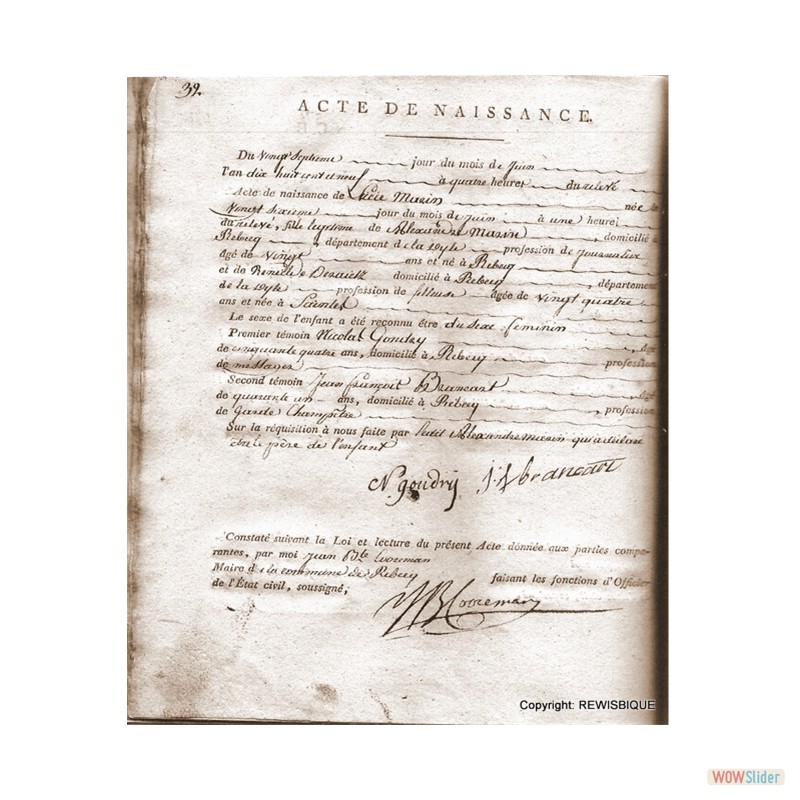 39.
ACTE DE NAISSANCE.
Du Vingt Septieme jour du mois de Juin
l'an dix huit cent et neuf à quatre heures du relevé
Acte de naissance de Marin née le
Vingt sixieme jour du mois de Juin à une heure
du relevé, fille legitime de Alexandre Marin, domicilié à
Rebecq, département de la Dyle profession de journalier
âgé de Vingt ans et né à Rebecq
et de domicilié à Rebecq, département
de la Dyle profession de fileuse âgée de Vingt quatre
ans et née à Saintes
Le sexe de l'enfant a été reconnu être du sexe feminin
Premier témoin Nicolas Goudry, âgé
de cinquante quatre ans, domicilié à Rebecq profession
de messager
Second témoin Jean François Brancart âgé
de quarante un ans, domicilié à Rebecq, profession
de Garde Champêtre
Sur la réquisition à nous faite par ledit Alexandre Marin qui a déclaré
être le père de l'enfant
N. goudry J. f brancart
Constaté suivant la Loi et lecture du présent Acte donnée aux parties compa-
rantes, par moi Jean Bte Cooreman
Maire de la commune de Rebecq faisant les fonctions d'Officier
de l'État civil, soussigné,
JB Cooreman
Copyright: REWISBIQUE
WOWSlider